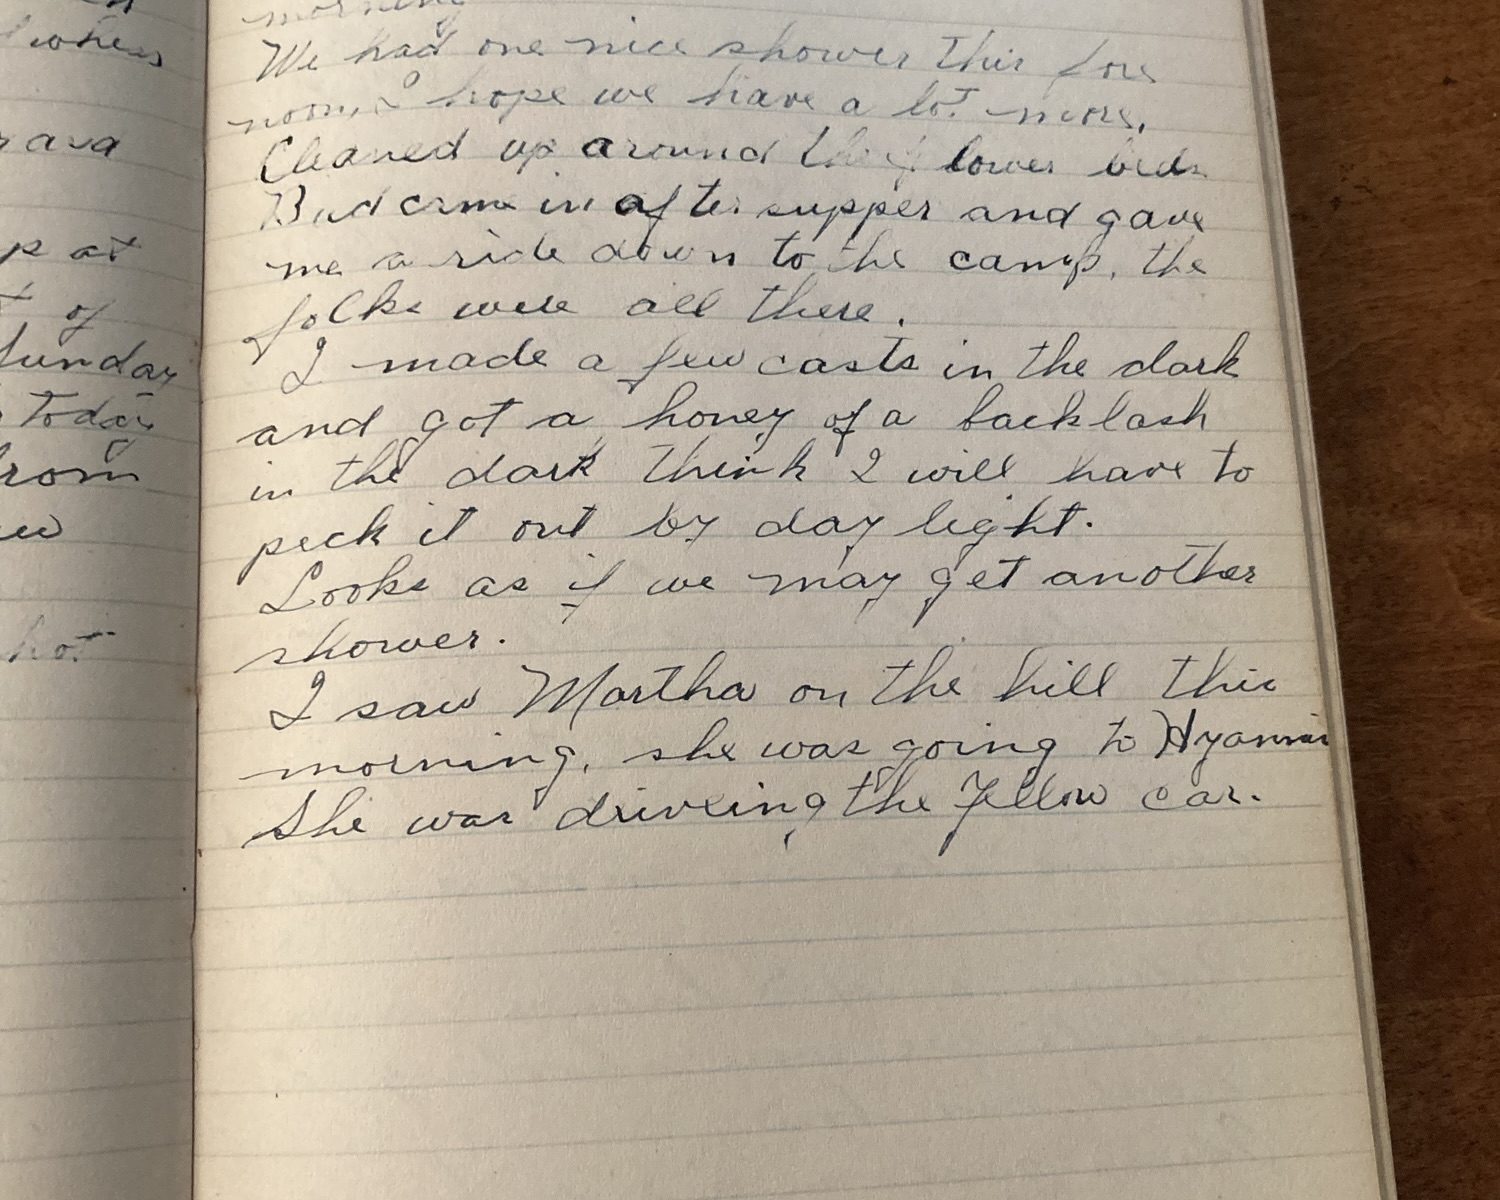 when
rava
p at
t of
Sunday
today
from
ew
hot
morning
We had one nice shower this fore
noon, I hope we have a lot more.
Cleaned up around the flower beds
Bud came in after supper and gave
me a ride down to the camp, the
folks were all there.
I made a few casts in the dark
and got a honey of a backlash
in the dark think I will have to
peck it out by day light.
Looks as if we may get another
shower.
I saw Martha on the hill this
morning, she was going to Hyannis
She was driveing the Yellow car.